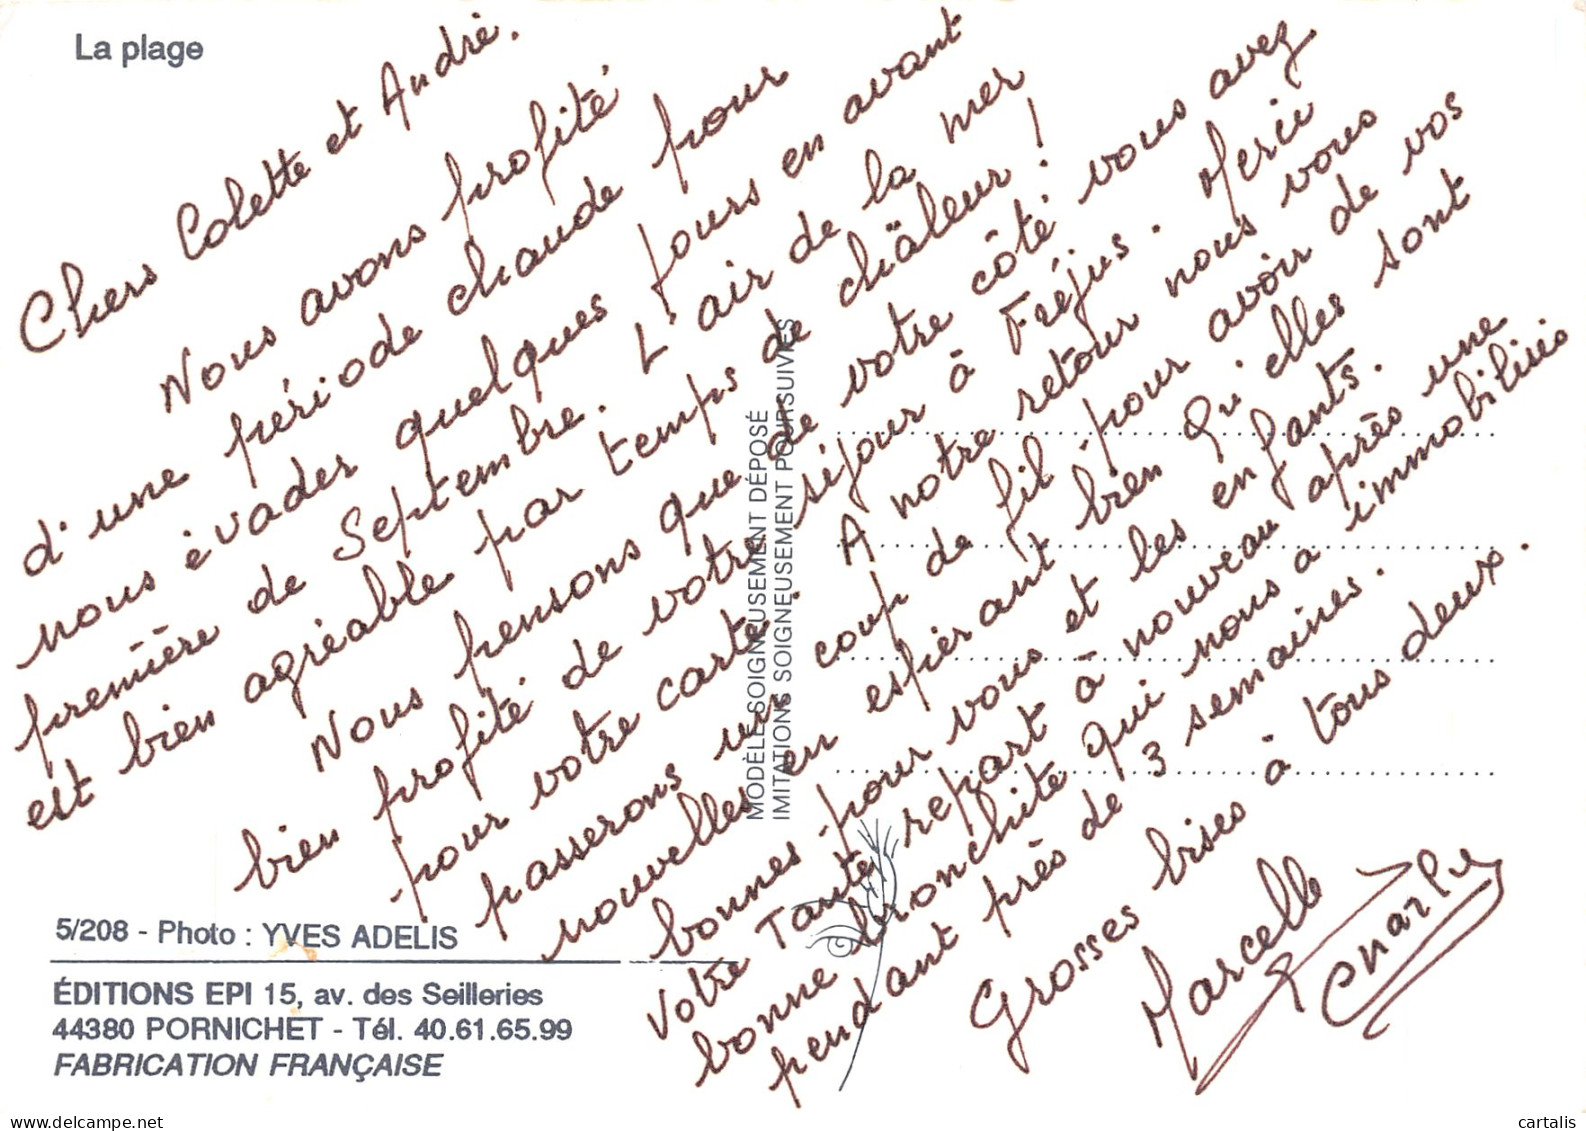 La plage
Chers Colette et André.
Nous avons profité
d'une période chaude pour
nous èvader quelques jours en avant
première de Septembre. L'air de la mer
est bien agréable par temps de châleur !
Nous pensons que de votre côté vous avez
bien profité de votre séjour à Fréjus. Merci
pour votre carte. A notre retour nous vous
passerons un coup de fil pour avoir de vos
nouvelles en espérant bien qu'elles sont
bonnes pour vous et les enfants.
Votre Tante repart à nouveau après une
bonne bronchite qui nous a immobilisés
pendant près de 3 semaines.
Grosses bises à tous deux.
Marcelle
MODÈLE SOIGNEUSEMENT DÉPOSÉ
IMITATIONS SOIGNEUSEMENT POURSUIVIES
5/208 - Photo : YVES ADELIS
ÉDITIONS EPI 15, av. des Seilleries
44380 PORNICHET - Tél. 40.61.65.99
FABRICATION FRANÇAISE
cartalis